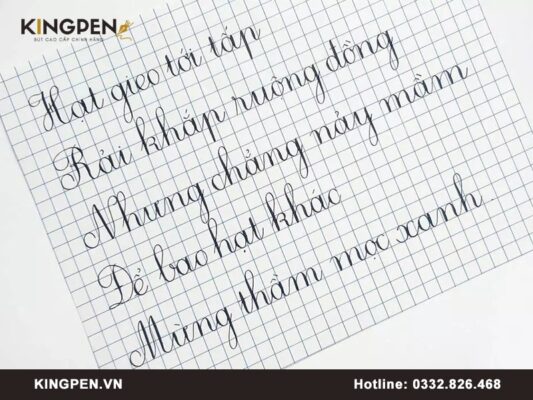 KINGPEN
BÚT CAO CẤP CHÍNH HÃNG
Hạt gieo tới tấp
Rải khắp ruộng đồng
Nhưng chẳng nảy mầm
Để bao hạt khác
Mừng thầm mọc xanh.
KINGPEN.VN
Hotline: 0332.826.468